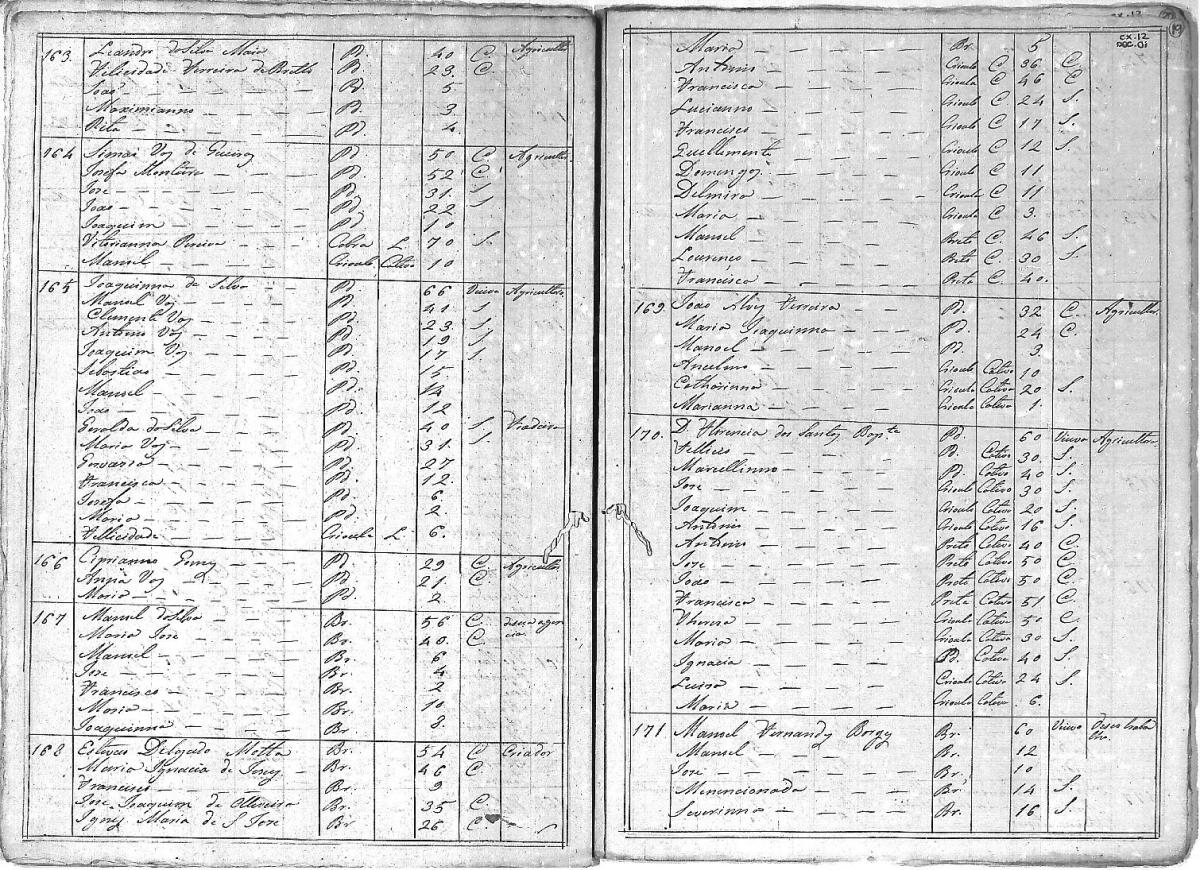 163. Leandro da Silva Maia P. 40 C. Agricultor
Velicidade Ferreira de P. 23. C.
João P. 5
Maximianno P. 3
Rita P. 4
164 Simai Vaz de Pd. 50 C. Agricultor
Josefa Monteiro Pd. 52 C.
Jose Pd 31. S
João Pd 22 S
Joaquim Pd 10
Vitorianna Pereira Cabra L. 70 S.
Manoel Crioulo Cativo 10
165 Joaquinna da Silva Pd. 66 Viuva Agricultora
Manoel Vaz Pd. 41 S
Clemente Vaz Pd. 23 S.
Antonio Vaz Pd. 19 S
Joaquim Vaz Pd. 17 S.
Sebastião Pd. 15
Manoel Pd. 14
João Pd. 12
Geralda da Silva Pd. 40 S. Fiadeira
Maria Vaz Pd. 31. S.
Pd. 27
Francisca Pd. 12.
Josefa Pd. 6.
Maria Pd. 2.
Fellicidade Crioula L. 6.
166 Ciprianno Pd 29 C. Agricultor
Anna Vaz Pd. 21 C.
Maria Pd. 2
167 Manoel da Silva Br. 56 C.
Maria Jose Br. 40. C.
Manoel Br. 6
Jose Br. 4
Francisco Br. 2
Maria Br. 10
Joaquinna Br. 8.
168 Estevão Delgado Motta Br. 54 C Criador
Maria Ignacia de Br. 46 C.
Francisco Br. 9
Jose Joaquim de Olliveira Br. 35 C
Ignez Maria de S. Jose Br. 26 C.
19
CX.12
DOC.01
Maria Br. 5
Antonio Crioulo C 36 C.
Francisca Crioula C 46 C
Lucianno Crioulo C 24 S.
Francisco Crioulo C 17 S.
Crioulo C 12 S.
Domingos Crioulo C 11
Delmira Crioula C 11
Maria Crioula C 3.
Manoel Preto C. 46 S.
Lourenco Preto C. 30 S.
Francisca Preta C. 40.
169. João Alvez Ferreira P. 32 C. Agricultor
Maria Joaquinna P. 24 C.
Manoel P. 3
Ancelmo Crioulo Cativo 10
Catharinna Crioula Cativa 20 S.
Marianna Crioula Cativa 1.
170. D. Florencia dos Santos Bapta. Pd. 60 Viuva Agricultora
Pd. Cativo 30 S.
Marcellinno Pd. Cativo 40 S.
Jose Crioulo Cativo 30 S.
Joaquim Crioulo Cativo 20 S.
Antonio Crioulo Cativo 16 S.
Antonio Preto Cativo 40 C.
Jose Preto Cativo 50 C.
João Preto Cativo 50 C.
Francisca Preta Cativa 51 C.
Thereza Crioula Cativa 50 C.
Maria Crioula Cativa 30 S.
Ignacia Pd. Cativa 40 S.
Luisa Crioula Cativa 24 S.
Maria Crioula Cativa 6.
171 Manoel Fernandez Borges Br. 60 Viuvo
Manoel Br. 12
Jose Br. 10
Br. 14 S.
Severinna Br. 16 S.